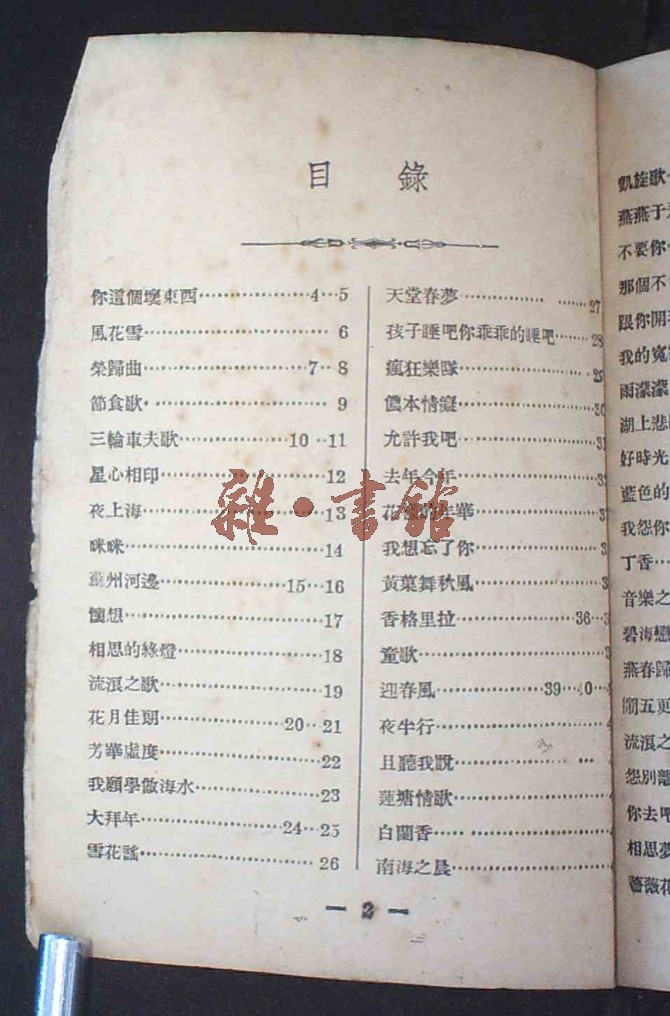 目錄
你這個壞東西 4‥5
風花雪 6
榮歸曲 7‥8
節食歌 9
三輪車夫歌 10‥11
星心相印 12
夜上海 13
咪咪 14
蘇州河邊 15‥16
懷想 17
相思的綠燈 18
流浪之歌 19
花月佳期 20‥21
芳華虛度 22
我願學做海水 23
大拜年 24‥25
雪花謠 26
天堂春夢 27
孩子睡吧你乖乖的睡吧 28
瘋狂樂隊 29
儂本情癡 30
允許我吧 31
去年今年 32
花 年華 3
我想忘了你 3
黃葉舞秋風 3
香格里拉 36‥3
童歌 3
迎春風 39‥40‥4
夜半行 4
且聽我說
蓮塘情歌
白蘭香
南海之晨
— 2 —
凱旋歌
燕燕于
不要你
那個不
跟你開
我的
雨濛濛
湖上悲
好時光
藍色的
我怨你
丁香
音樂之
碧海戀
燕春歸
鬧五更
流浪之
怨別離
你去吧
相思夢
薔薇花
雜·書館